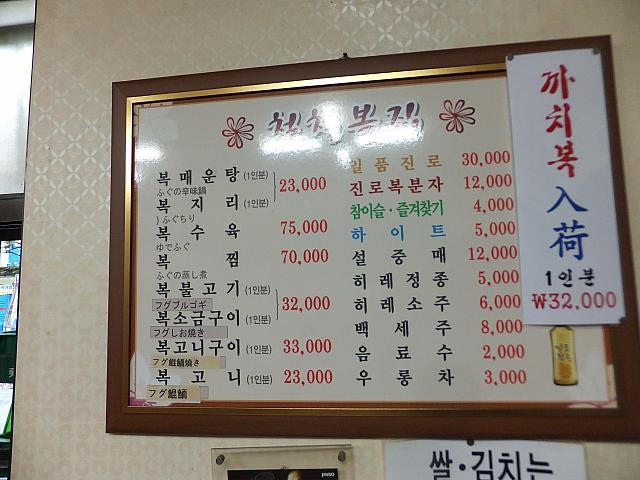 복집
복 매 운 탕 (1인분)
ふぐの辛味鍋
23,000
복 지 리 (1인분)
)ふぐちり
복 수 육 75,000
ゆでふぐ
복 찜 70,000
ふぐの蒸し煮
복 불 고 기 (1인분)
フグプルゴギ
32,000
복소금구이 (1인분)
フグしお焼き
복고니구이 (1인분) 33,000
フグ鯤鮞焼き
복 고 니 (1인분) 23,000
フグ鯤鮞
일 품 진 로 30,000
진로복분자 12,000
참이슬·즐겨찾기 4,000
하 이 트 5,000
설 중 매 12,000
히레정종 5,000
히레소주 6,000
백 세 주 8,000
음 료 수 2,000
우 롱 차 3,000
까치복入荷
1인분
₩32,000
JINRO
쌀·김치는